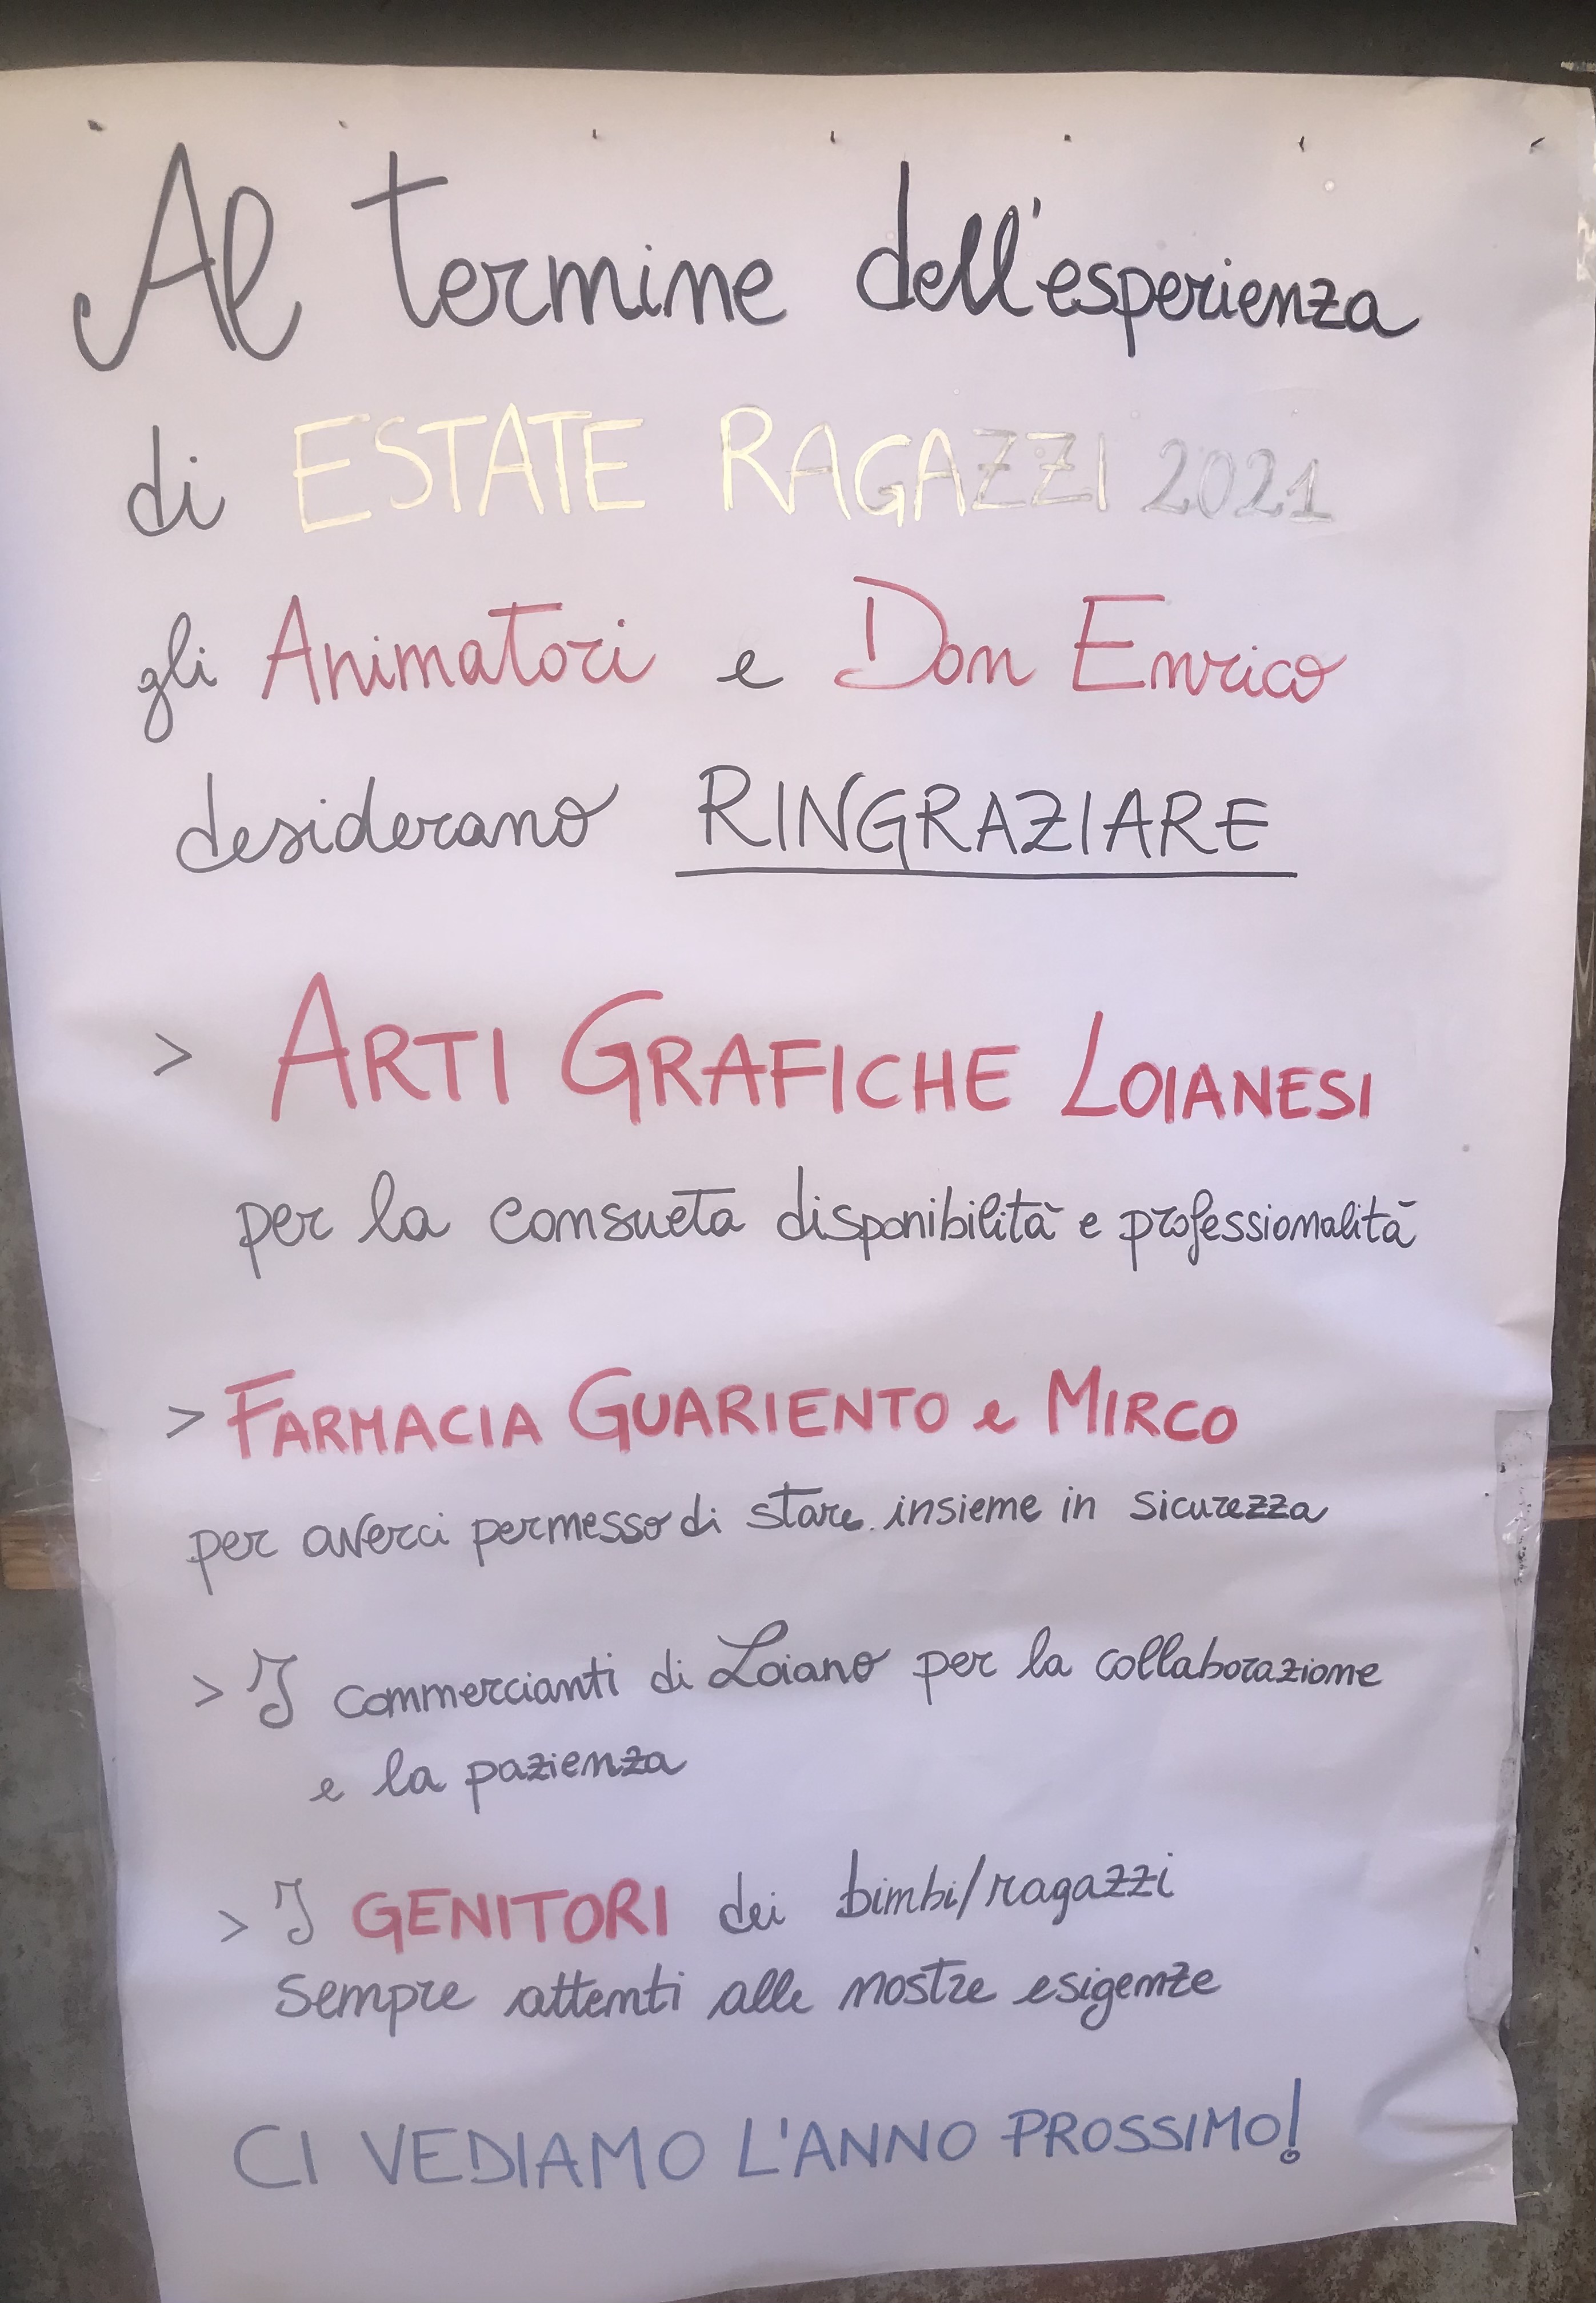 Al termine dell'esperienza
di ESTATE RAGAZZI 2021
gli Animatori e Don Enrico
desiderano RINGRAZIARE
> ARTI GRAFICHE LOIANESI
per la consueta disponibilità e professionalità
> FARMACIA GUARIENTO e MIRCO
per averci permesso di stare insieme in sicurezza
> I commercianti di Loiano per la collaborazione
e la pazienza
> I GENITORI dei bimbi/ragazzi
sempre attenti alle nostre esigenze
CI VEDIAMO L'ANNO PROSSIMO!